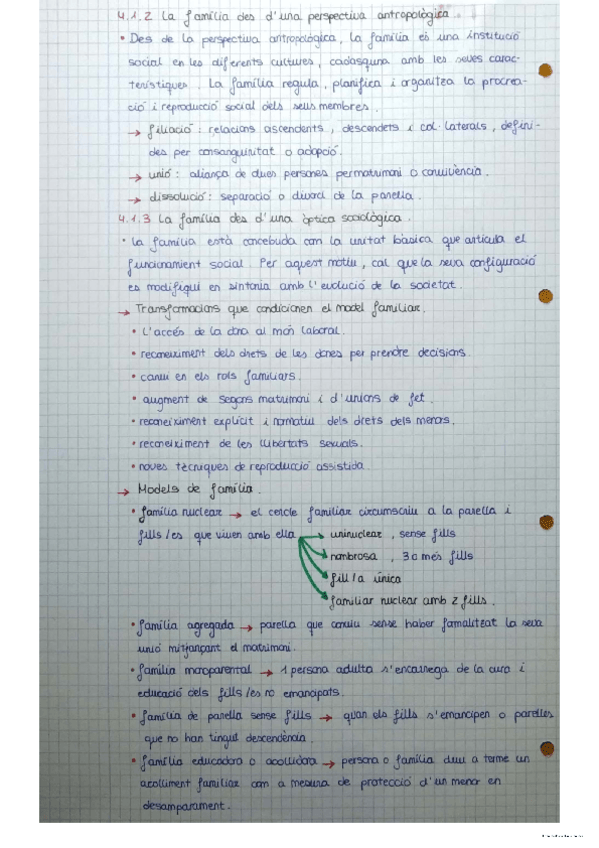 4.1.2 La família des d'una perspectiva antropològica.
• Des de la perspectiva antropològica, la família és una institució
social en les diferents cultures, cadasquna amb les seves carac-
terístiques. La família regula, planifica i organitza la procrea-
ció i reproducció social dels seus membres.
→ filiació: relacions ascendents, descendets i col·laterals, defini-
des per consanguinitat o adopció.
→ unió: aliança de dues persones per matrimoni o convivència.
→ dissolució: separació o divorci de la parella.
4.1.3 La família des d'una òptica sociològica.
• La família està concebuda com la unitat bàsica que articula el
funcionament social. Per aquest motiu, cal que la seva configuració
es modifiqui en sintonia amb l'evolució de la societat.
→ Transformacions que condicionen el model familiar.
• L'accés de la dona al món laboral.
• reconeixement dels drets de les dones per prendre decisions.
• canvi en els rols familiars.
• augment de segons matrimoni i d'unions de fet.
• reconeiximent explícit i normatiu dels drets dels menors.
• reconeiximent de les llibertats sexuals.
• noves tècniques de reproducció assistida.
→ Models de família.
• família nuclear → el cercle familiar circumscriu a la parella i
fills/es que viuen amb ella → uninuclear, sense fills
nombrosa, 3 o més fills
fill/a única
familiar nuclear amb 2 fills.
• família agregada → parella que conviu sense haber formalitzat la seva
unió mitjançant el matrimoni.
• família monoparental → 1 persona adulta s'encarrega de la cura i
educació dels fills/es no emancipats.
• família de parella sense fills → quan els fills s'emancipen o parelles
que no han tingut descendència.
• família educadora o acollidora → persona o família duu a terme un
acolliment familiar com a mesura de protecció d'un menor en
desamparament.